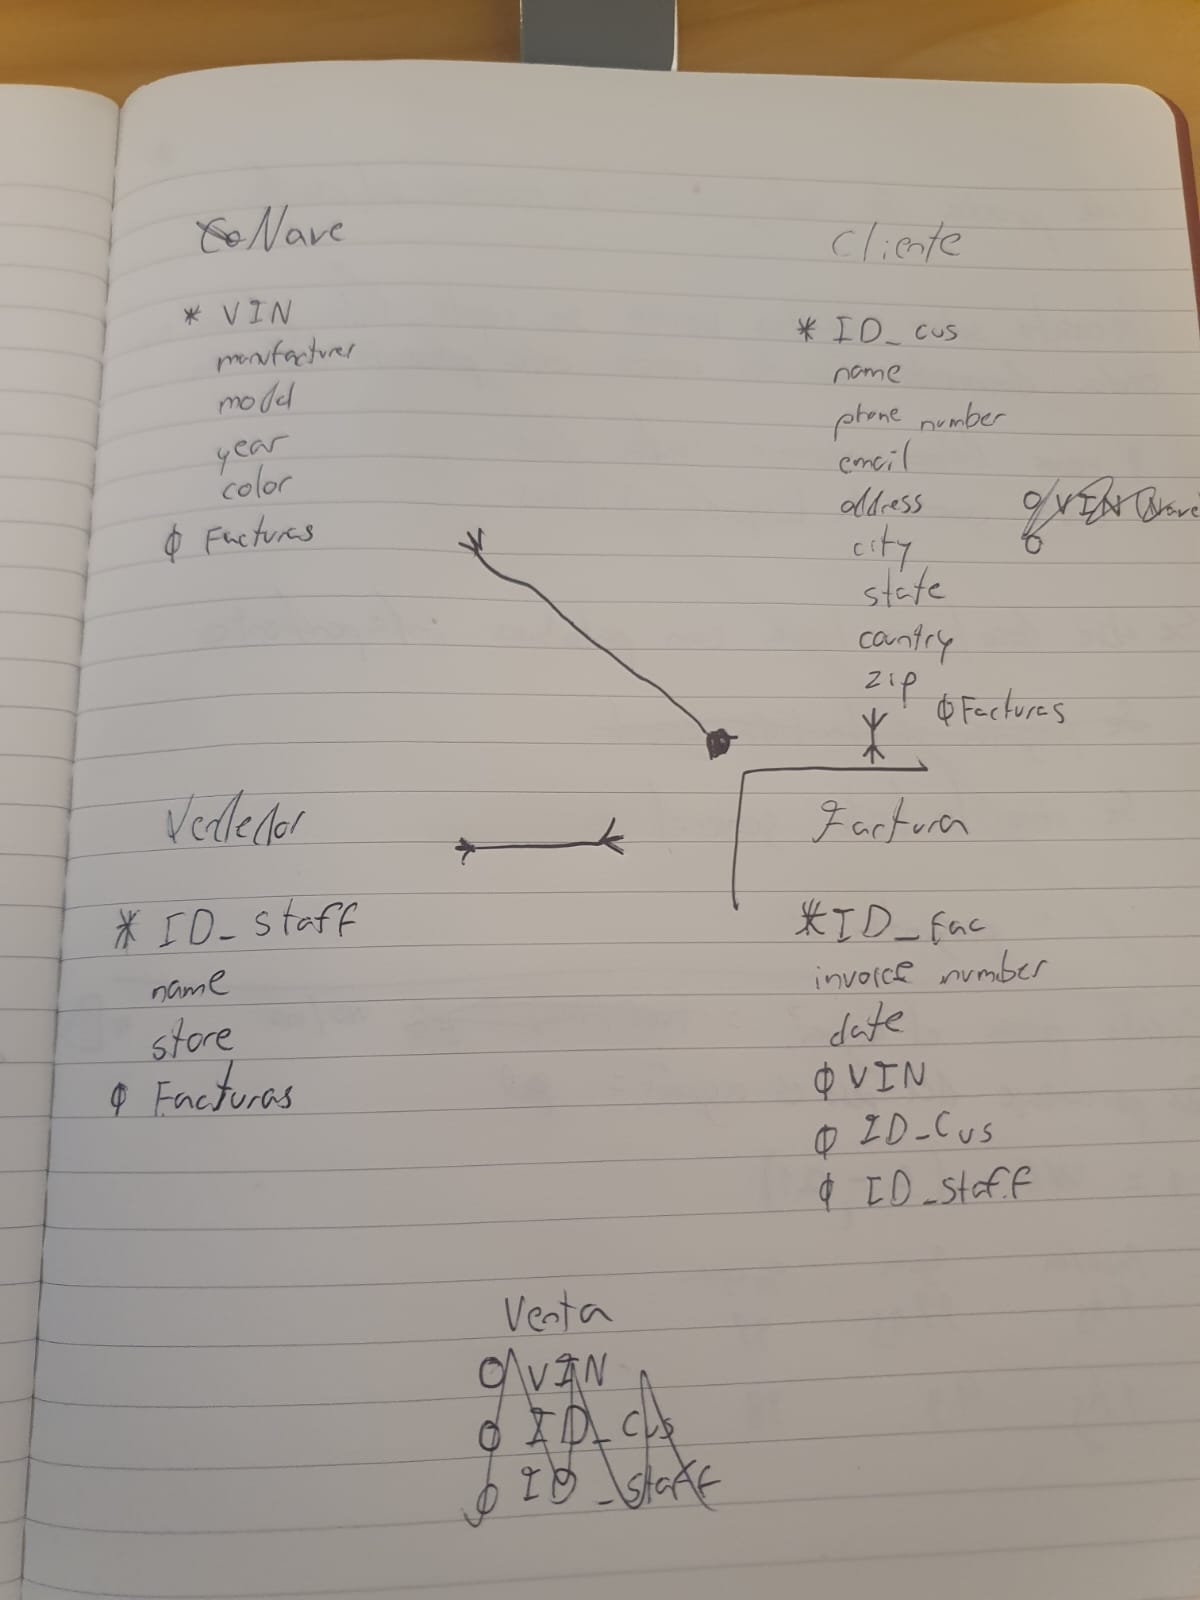 Nave
* VIN
manufacturer
model
year
color
φ Facturas
Cliente
* ID_cus
name
phone number
email
address
city
state
country
zip
φ Facturas
φ VIN (Nave
Vendedor
* ID_staff
name
store
φ Facturas
Factura
* ID_Fac
invoice number
date
φ VIN
φ ID_Cus
φ ID_staff
Venta
φ VIN
φ ID_cus
φ ID_staff